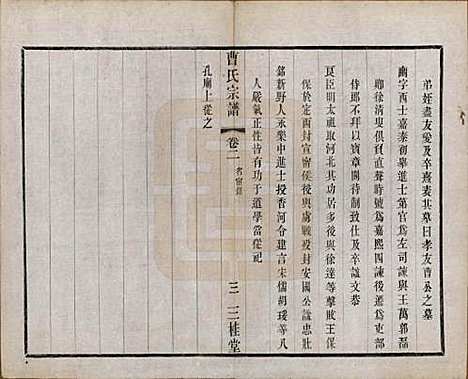 弟姪盡友愛及卒熹表其墓曰孝友曹公之墓
豳字西士嘉泰初舉進士第官爲左司諫與王萬郭磊
卿徐清叟俱負直聲時號爲嘉熙四諫後遷爲禮部
侍郎不拜以寶章閣待制致仕卒諡文恭
良臣明太祖取河北其功居多後與徐達等擊敗王保
保於定西封宣甯侯後與虜戰歿封安國公諡忠壯
銘新野人永樂中進士授香河令建言宋儒胡瑗等八
人嚴氣正性皆有功于道學當從祀
孔廟上從之
曹氏宗譜
卷二
三
三桂堂